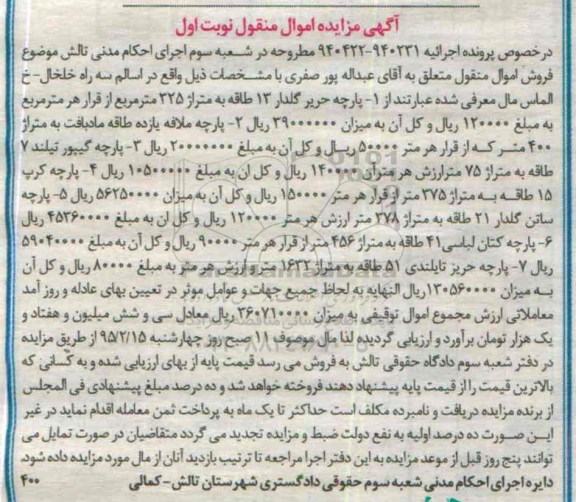 آگهی مزایده اموال منقول نوبت اول
درخصوص پرونده اجرائیه ۹۴۰۲۳۱-۹۴۰۴۲۲ مطروحه در شعبه سوم اجرای احکام مدنی تالش موضوع
فروش اموال منقول متعلق به آقای عبداله پور صفری با مشخصات ذیل واقع در اسالم سه راه خلخال-خ
الماس مال معرفی شده عبارتند از ۱- پارچه حریر گلدار ۱۳ طاقه به متراژ ۳۲۵ مترمربع از قرار هر مترمربع
به مبلغ ۱۲۰۰۰۰ ریال و کل آن به میزان ۳۹۰۰۰۰۰۰ ریال ۲- پارچه ملافه یازده طاقه مادبافت به متراژ
۴۰۰ متر که از قرار هر متر ۵۰۰۰۰ ریال و کل آن به مبلغ ۲۰۰۰۰۰۰۰ ریال ۳- پارچه گیپور تیلند ۷
طاقه به متراژ ۷۵ مترارزش هر متر آن ۱۴۰۰۰۰ ریال و کل ان به مبلغ ۱۰۵۰۰۰۰۰ ریال ۴- پارچه کرپ
۱۵ طاقه به متراژ ۳۷۵ متر از قرار هر متر ۱۵۰۰۰۰ ریال و کل آن به میزان ۵۶۲۵۰۰۰۰ ریال ۵- پارچه
ساتن گلدار ۲۱ طاقه به متراژ ۳۷۸ متر ارزش هر متر ۱۲۰۰۰۰ ریال و کل ان به مبلغ ۴۵۳۶۰۰۰۰ ریال
۶- پارچه کتان لباسی ۴۱ طاقه به متراژ ۴۵۶ متر از قرار هر متر ۹۰۰۰۰ ریال و کل آن به مبلغ ۵۹۰۴۰۰۰۰
ریال ۷- پارچه حریز تایلندی ۵۱ طاقه به متراژ ۱۶۳۲ متر و ارزش هر متر به مبلغ ۸۰۰۰۰ ریال و کل آن
به میزان ۱۳۰۵۶۰۰۰۰ ریال النهایه به لحاظ جمیع جهات و عوامل موثر در تعیین بهای عادله و روز آمد
معاملاتی ارزش مجموع اموال توقیفی به میزان ۳۶۰۷۱۰۰۰۰ ریال معادل سی و شش میلیون و هفتاد و
یک هزار تومان برآورد و ارزیابی گردیده لذا مال موصوف ۱۱ صبح روز چهارشنبه ۹۵/۲/۱۵ از طریق مزایده
در دفتر شعبه سوم دادگاه حقوقی تالش به فروش می رسد قیمت پایه از بهای ارزیابی شده و به کسانی که
بالاترین قیمت را از قیمت پایه پیشنهاد دهند فروخته خواهد شد و ده درصد مبلغ پیشنهادی فی المجلس
از برنده مزایده دریافت و نامبرده مکلف است حداکثر تا یک ماه به پرداخت ثمن معامله اقدام نماید در غیر
این صورت ده درصد اولیه به نفع دولت ضبط و مزایده تجدید می گردد متقاضیان در صورت تمایل می
توانند پنج روز قبل از موعد مزایده به این دفتر اجرا مراجعه تا ترتیب بازدید آنان از مال مورد مزایده داده شود.
دایره اجرای احکام مدنی شعبه سوم حقوقی دادگستری شهرستان تالش-کمالی ۴۰۰